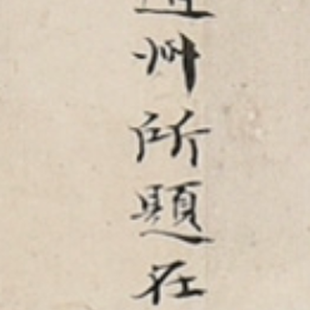 州所題在